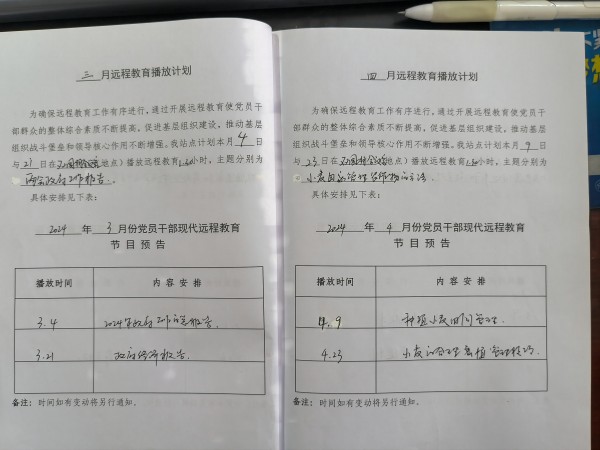 三 月远程教育播放计划
为确保远程教育工作有序进行,通过开展远程教育使党员干
部群众的整体综合素质不断提高,促进基层组织建设,推动基层
组织战斗堡垒和领导核心作用不断增强。我站点计划本月 4 日
与 21 日在 (地点)播放远程教育 小时,主题分别为
工作报告。
具体安排见下表:
2024 年 3 月份党员干部现代远程教育
节目预告
播放时间 内容安排
3.4 2024年政府工作 报告
3.21 政府 报告
备注: 时间如有变动将另行通知。
四 月远程教育播放计划
为确保远程教育工作有序进行,通过开展远程教育使党员干
部群众的整体综合素质不断提高,促进基层组织建设,推动基层
组织战斗堡垒和领导核心作用不断增强。我站点计划本月 9 日
与 23 日在 (地点)播放远程教育 小时,主题分别为
小麦 管理 方法。
具体安排见下表:
2024 年 4 月份党员干部现代远程教育
节目预告
播放时间 内容安排
4.9 种植小麦田间管理
4.23 小麦 种植管理技巧
备注: 时间如有变动将另行通知。